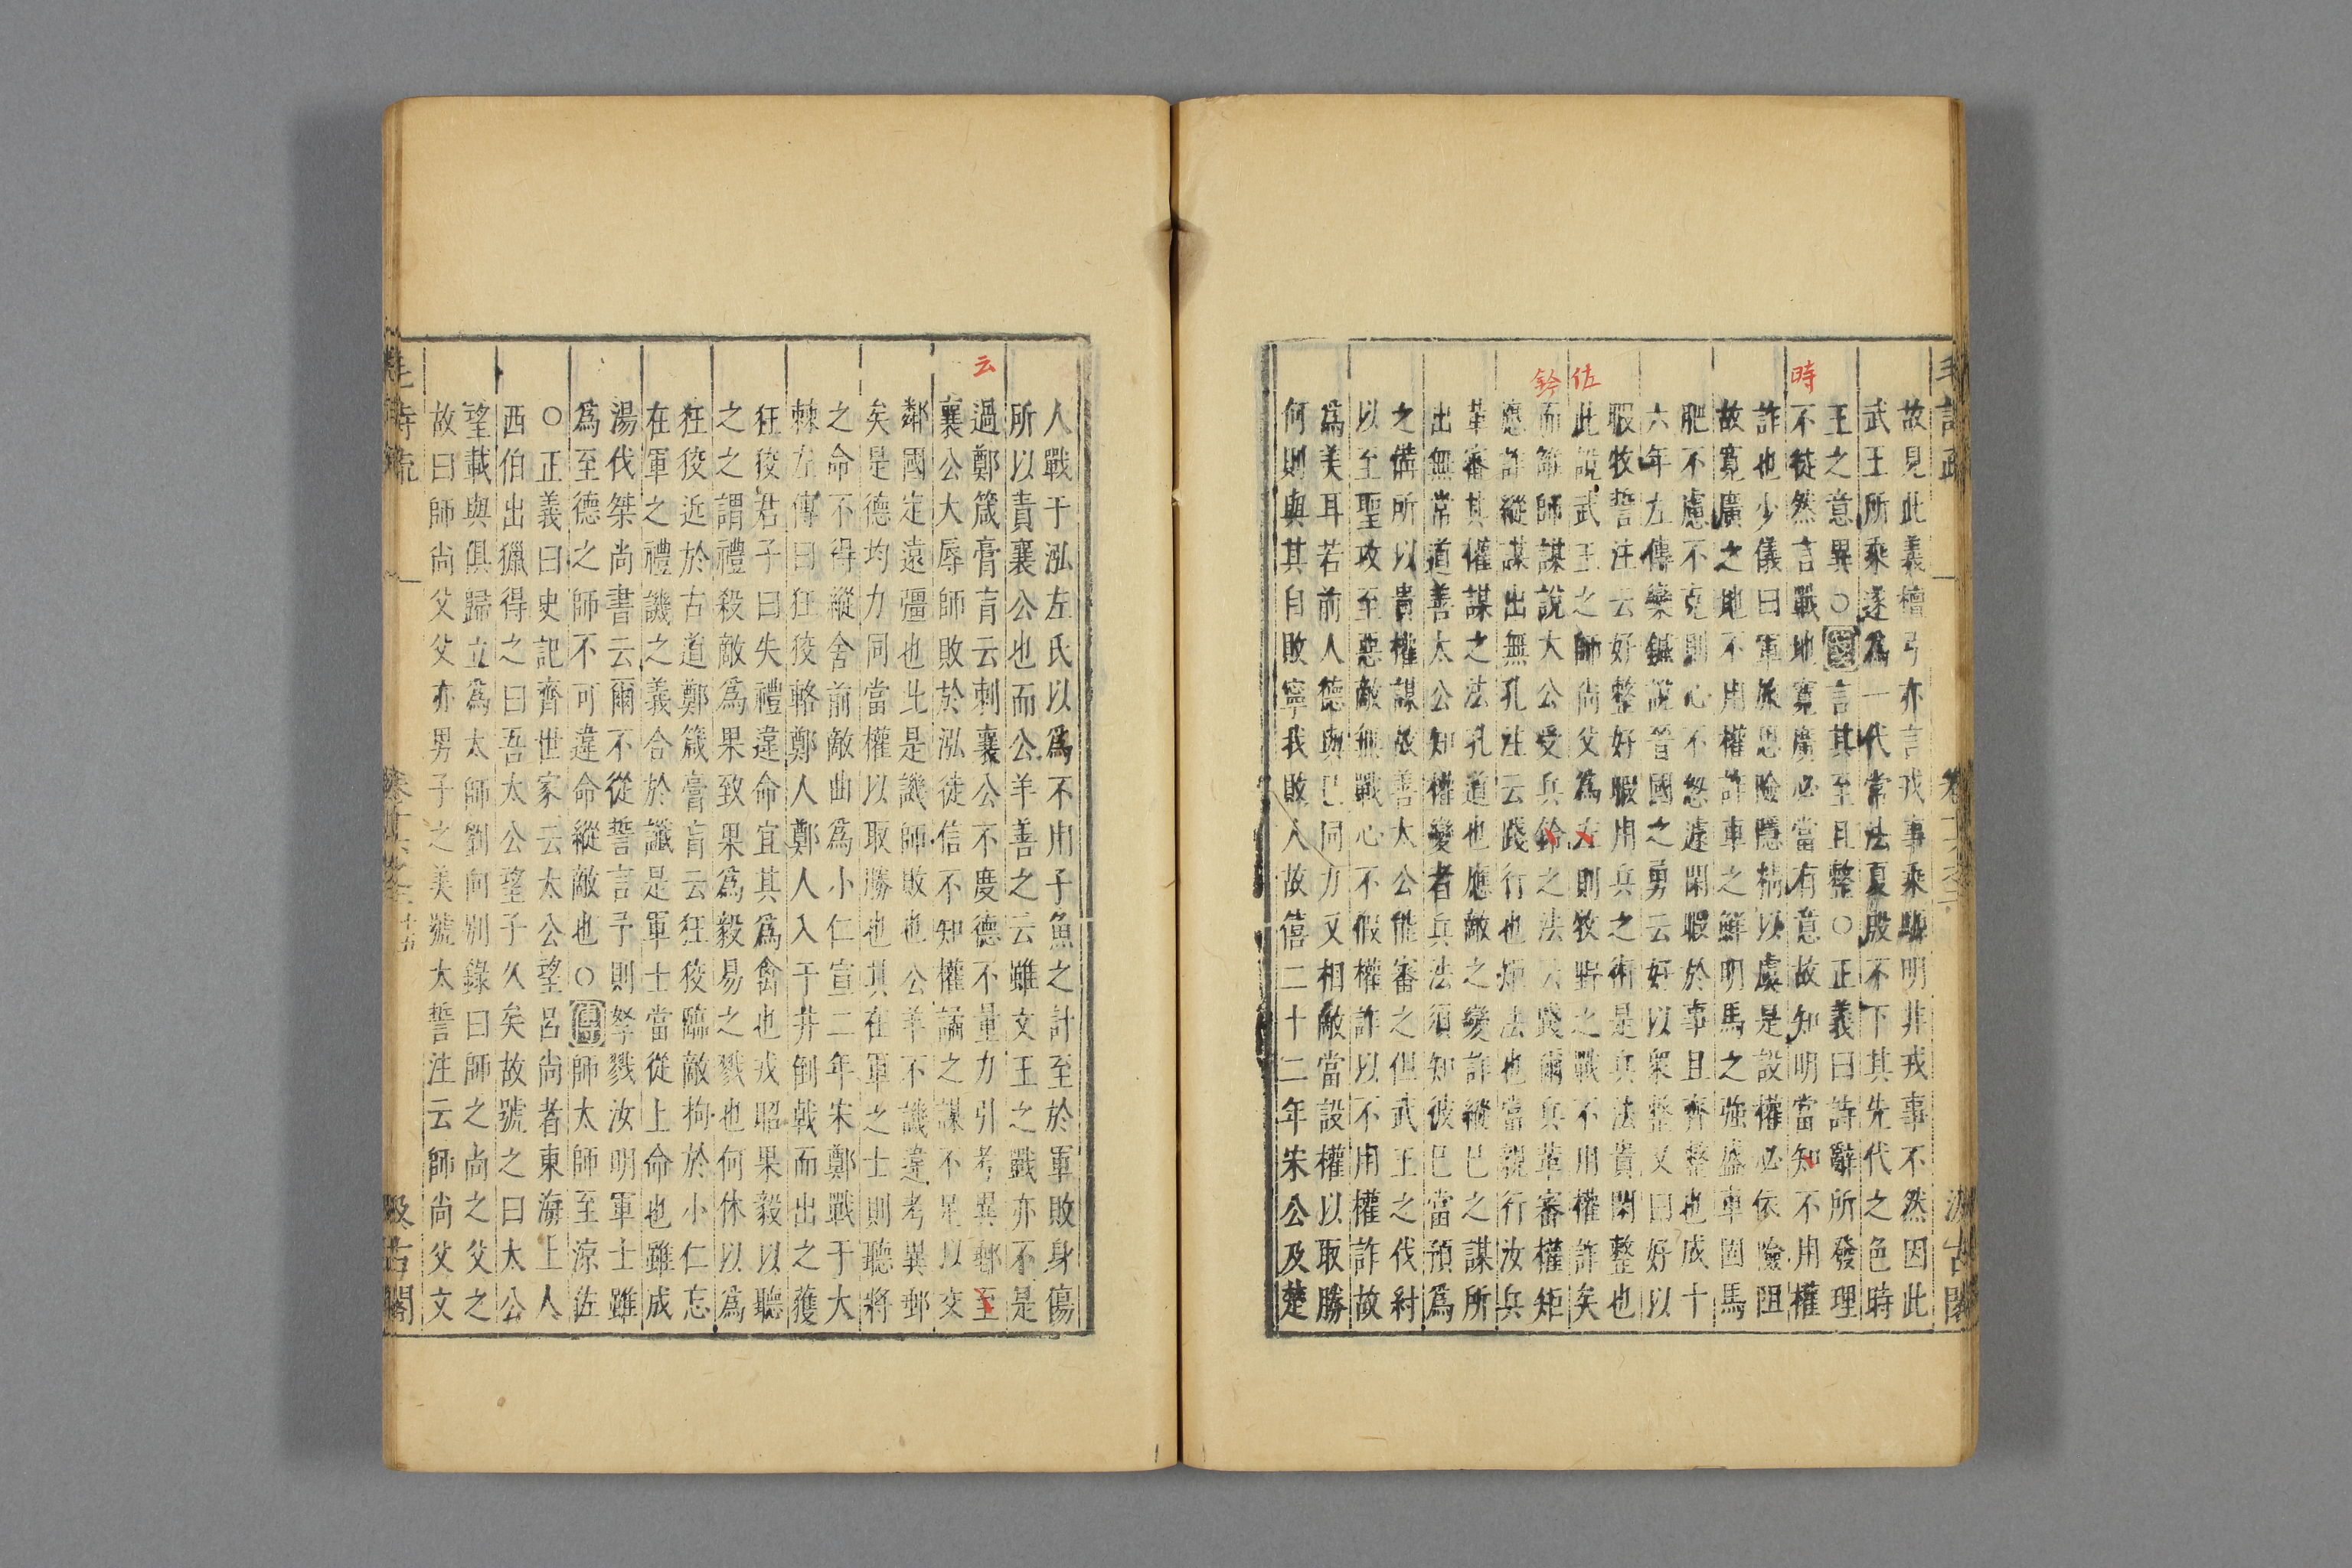 時
佐
鈐
故見此義檀弓亦言戎事乘騵明非戎事不然因此
武王所乘遂爲一代常法夏殷不下其先代之色時
王之意異○疏言其至且整○正義曰詩辭所發理
不徒然言戰地寬廣必當有意故知明當知不用權
詐也少儀曰軍旅思險隱情以虞是設權必依險阻
故寬廣之地不用權詐車之鮮明馬之強盛車固馬
肥不慮不克則心不怱遽閑暇於事且齊整也成十
六年左傳欒鍼說晉國之勇云好以衆整又曰好以
暇牧誓注云好整好暇用兵之術是兵法貴閑整也
此說武王之師尚父爲左則牧野之戰不用權詐矣
而維師謀說太公受兵鈴之法云踐爾兵革審權矩
應詐縱謀出無孔注云踐行也矩法也當親行汝兵
革審其權謀之法孔道也應敵之變詐縱己之謀所
出無常道善太公知權變者兵法須知彼己當預爲
之備所以貴權謀故善太公能審之但武王之伐紂
以至聖攻至惡敵無戰心不假權詐以不用權詐故
爲美耳若前人德與己同力又相敵當設權以取勝
何則與其自敗寧我敗人故僖二十二年朱公及楚
毛詩疏
卷十六之二
汲古閣
云
人戰于泓左氏以爲不用子魚之計至於軍敗身傷
所以責襄公也而公羊善之云雖文王之戰亦不是
過鄭箴膏肓云刺襄公不度德不量力引考異郵至
襄公大辱師敗於泓徒信不知權譎之謀不足以交
鄰國定遠彊也此是譏師敗也公羊不譏違考異郵
矣是德均力同當權以取勝也其在軍之士則聽將
之命不得縱舍前敵曲爲小仁宣二年宋鄭戰于大
棘左傳曰狂狡輅鄭人鄭人入于井倒戟而出之獲
狂狡君子曰失禮違命宜其爲禽也戎昭果毅以聽
之之謂禮殺敵爲果致果爲毅易之戮也何休以爲
狂狡近於古道鄭箴膏肓云狂狡臨敵拘於小仁忘
在軍之禮譏之義合於讖是軍士當從上命也雖成
湯伐桀尚書云爾不從誓言予則孥戮汝明軍士雖
爲至德之師不可違命縱敵也○傳師太師至涼佐
○正義曰史記齊世家云太公望呂尚者東海上人
西伯出獵得之曰吾太公望子久矣故號之曰太公
望載與俱歸立爲太師劉向別錄曰師之尚之父之
故曰師尚父父亦男子之美號太誓注云師尚父文
毛詩疏
卷十六之二
十五
汲古閣